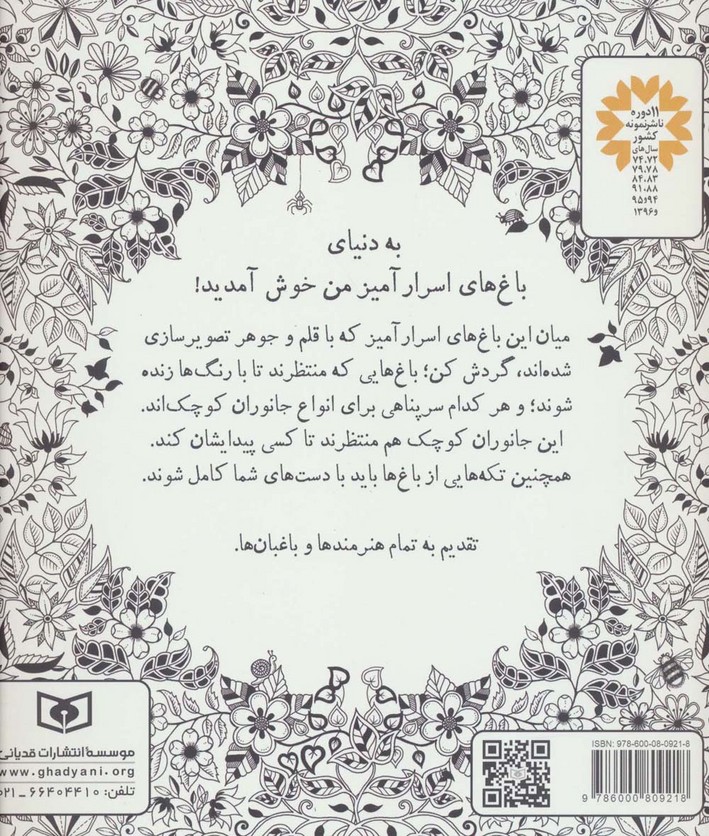 ۱۱دوره
ناشر نمونه
کشور
سال‌های
۷۴.۷۲
۷۹.۷۸
۸۴.۸۳
۹۱.۸۸
۹۵و۹۴
و۱۳۹۶
به دنیای
باغ‌های اسرارآمیز من خوش آمدید!
میان این باغ‌های اسرارآمیز که با قلم و جوهر تصویرسازی
شده‌اند، گردش کن؛ باغ‌هایی که منتظرند تا با رنگ‌ها زنده
شوند؛ و هر کدام سرپناهی برای انواع جانوران کوچک‌اند.
این جانوران کوچک هم منتظرند تا کسی پیدایشان کند.
همچنین تکه‌هایی از باغ‌ها باید با دست‌های شما کامل شوند.
تقدیم به تمام هنرمندها و باغبان‌ها.
موسسهٔ انتشارات قدیانی
www.ghadyani.org
تلفن: ۶۶۴۰۴۴۱۰ ـ ۰۲۱
ISBN: 978-600-08-0921-8
9 786000 809218